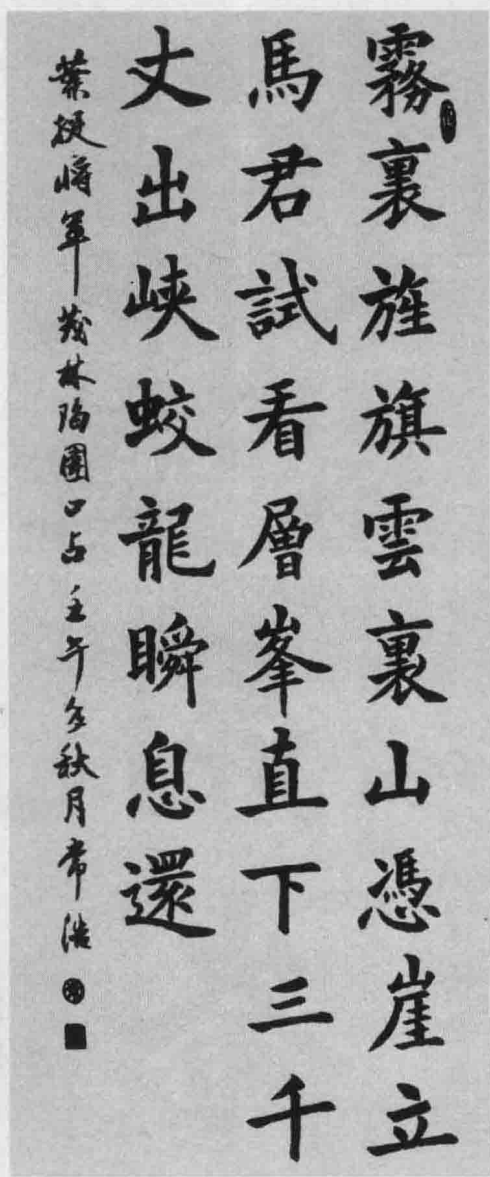 霧裏旌旗雲裏山憑崖立
馬君試看層峯直下三千
丈出峽蛟龍瞬息還
葉挺將軍茂林陷圍口占壬午年秋月常浩